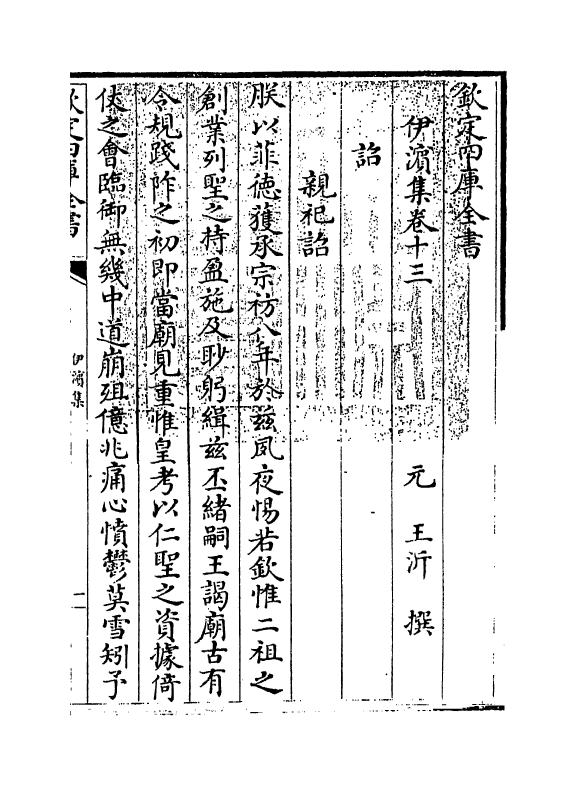 欽定四庫全書
伊濱集卷十三　元　王沂　撰
詔
親祀詔
朕以菲德獲承宗祊八年於兹夙夜惕若欽惟二祖之
創業列聖之持盈施及眇躬緝兹丕緒嗣王謁廟古有
令規踐阼之初即當廟見重惟皇考以仁聖之資據倚
伏之會臨御無幾中道崩殂億兆痛心憤鬱莫雪矧予
欽定四庫全書
伊濱集
一